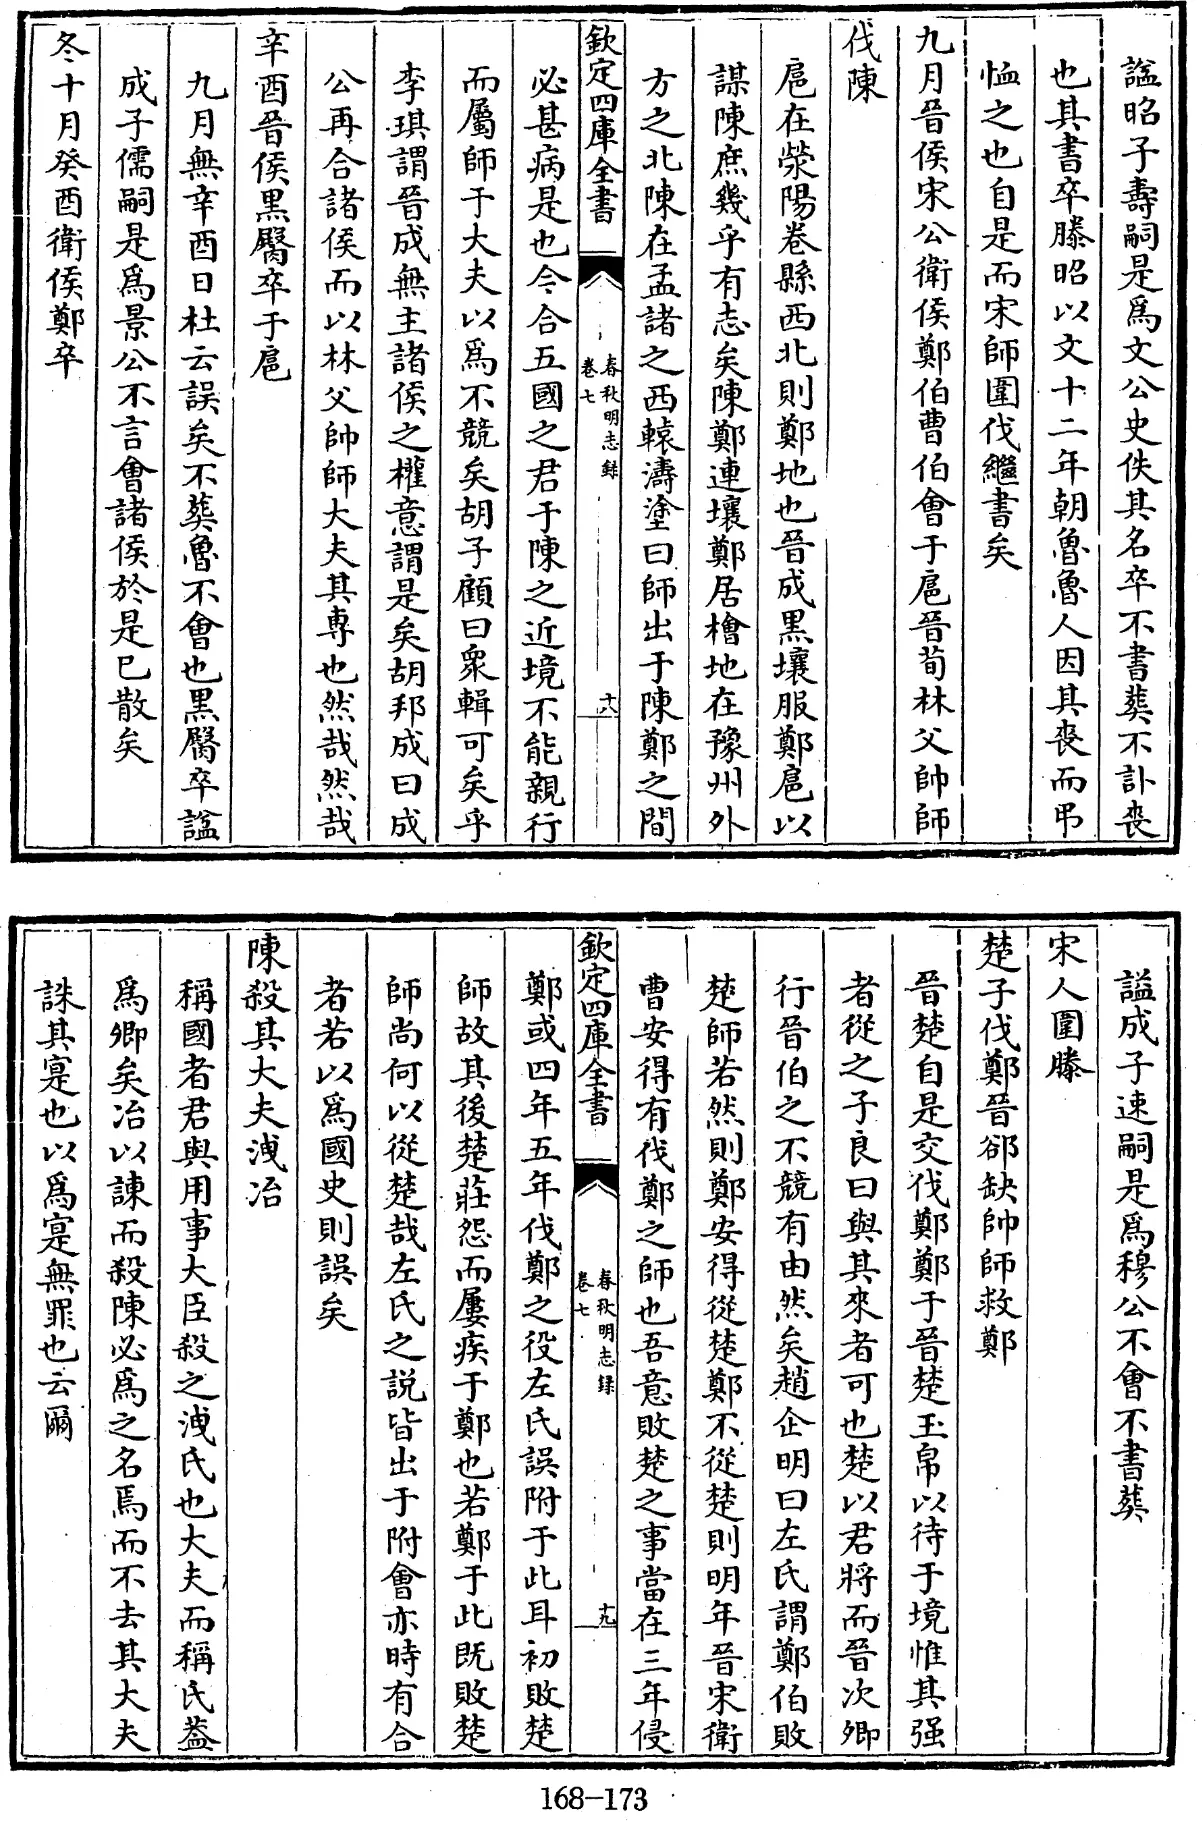 諡昭子壽嗣是爲文公史佚其名卒不書葬不訃丧
也其書卒滕昭以文十二年朝魯魯人因其丧而弔
恤之也自是而宋師圍伐繼書矣
九月晉侯宋公衛侯鄭伯曹伯會于扈晉荀林父帥師
伐陳
扈在滎陽卷縣西北則鄭地也晉成黒壤服鄭扈以
謀陳庶幾乎有志矣陳鄭連壤鄭居檜地在豫州外
方之北陳在孟諸之西轅濤塗曰師出于陳鄭之間
欽定四庫全書
春秋明志録
卷七
十八
必甚病是也今合五國之君于陳之近境不能親行
而屬師于大夫以爲不競矣胡子顧曰衆輯可矣乎
李琪謂晉成無主諸侯之權意謂是矣胡邦成曰成
公再合諸侯而以林父帥師大夫其專也然哉然哉
辛酉晉侯黒臀卒于扈
九月無辛酉日杜云誤矣不葬魯不會也黒臀卒諡
成子儒嗣是爲景公不言會諸侯於是已散矣
冬十月癸酉衛侯鄭卒
謚成子速嗣是爲穆公不會不書葬
宋人圍滕
楚子伐鄭晉郤缺帥師救鄭
晉楚自是交伐鄭鄭于晉楚玉帛以待于境惟其强
者從之子良曰與其來者可也楚以君將而晉次卿
行晉伯之不競有由然矣趙企明曰左氏謂鄭伯敗
楚師若然則鄭安得從楚鄭不從楚則明年晉宋衛
曹安得有伐鄭之師也吾意敗楚之事當在三年侵
欽定四庫全書
春秋明志録
卷七
十九
鄭或四年五年伐鄭之役左氏誤附于此耳初敗楚
師故其後楚莊怨而屢疾于鄭也若鄭于此既敗楚
師尚何以從楚哉左氏之説皆出于附會亦時有合
者若以爲國史則誤矣
陳殺其大夫洩冶
稱國者君與用事大臣殺之洩氏也大夫而稱氏葢
爲卿矣冶以諫而殺陳必爲之名焉而不去其大夫
誅其寔也以爲寔無罪也云爾
168-173